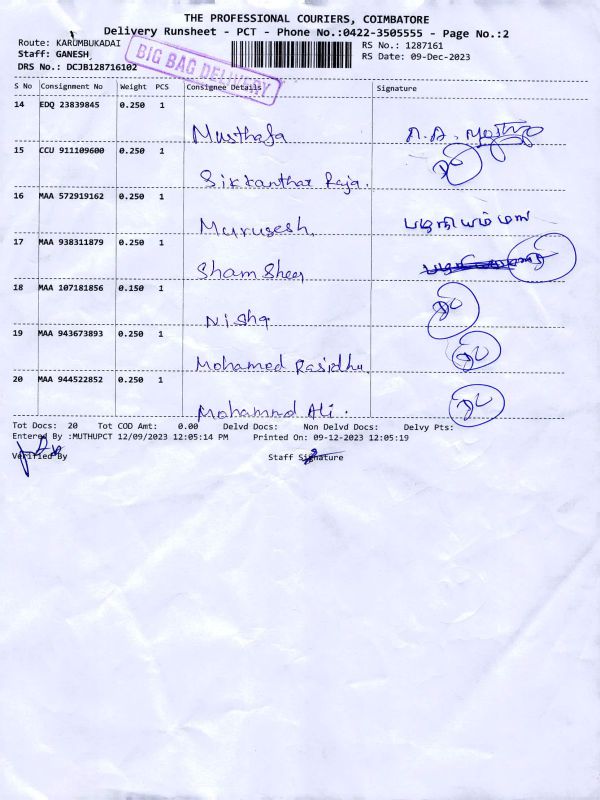 THE PROFESSIONAL COURIERS, COIMBATORE
Delivery Runsheet - PCT - Phone No.:0422-3505555 - Page No.:2
Route: KARUMBUKADAI
RS No.: 1287161
Staff: GANESH
RS Date: 09-Dec-2023
DRS No.: DCJB128716102
BIG BAG DELIVERY
S No Consignment No Weight PCS Consignee Details Signature
14 EDQ 23839845 0.250 1
Musthafa
15 CCU 911109600 0.250 1
Sikkanthar Raja.
16 MAA 572919162 0.250 1
Murugesh.
17 MAA 938311879 0.250 1
Sham Sheer
18 MAA 107181856 0.150 1
Nisha
19 MAA 943673893 0.250 1
Mohamed Rasidhu
20 MAA 944522852 0.250 1
Mohamnd Ali.
Tot Docs: 20 Tot COD Amt: 0.00 Delvd Docs: Non Delvd Docs: Delvy Pts:
Entered By :MUTHUPCT 12/09/2023 12:05:14 PM Printed On: 09-12-2023 12:05:19
Verified By Staff Signature